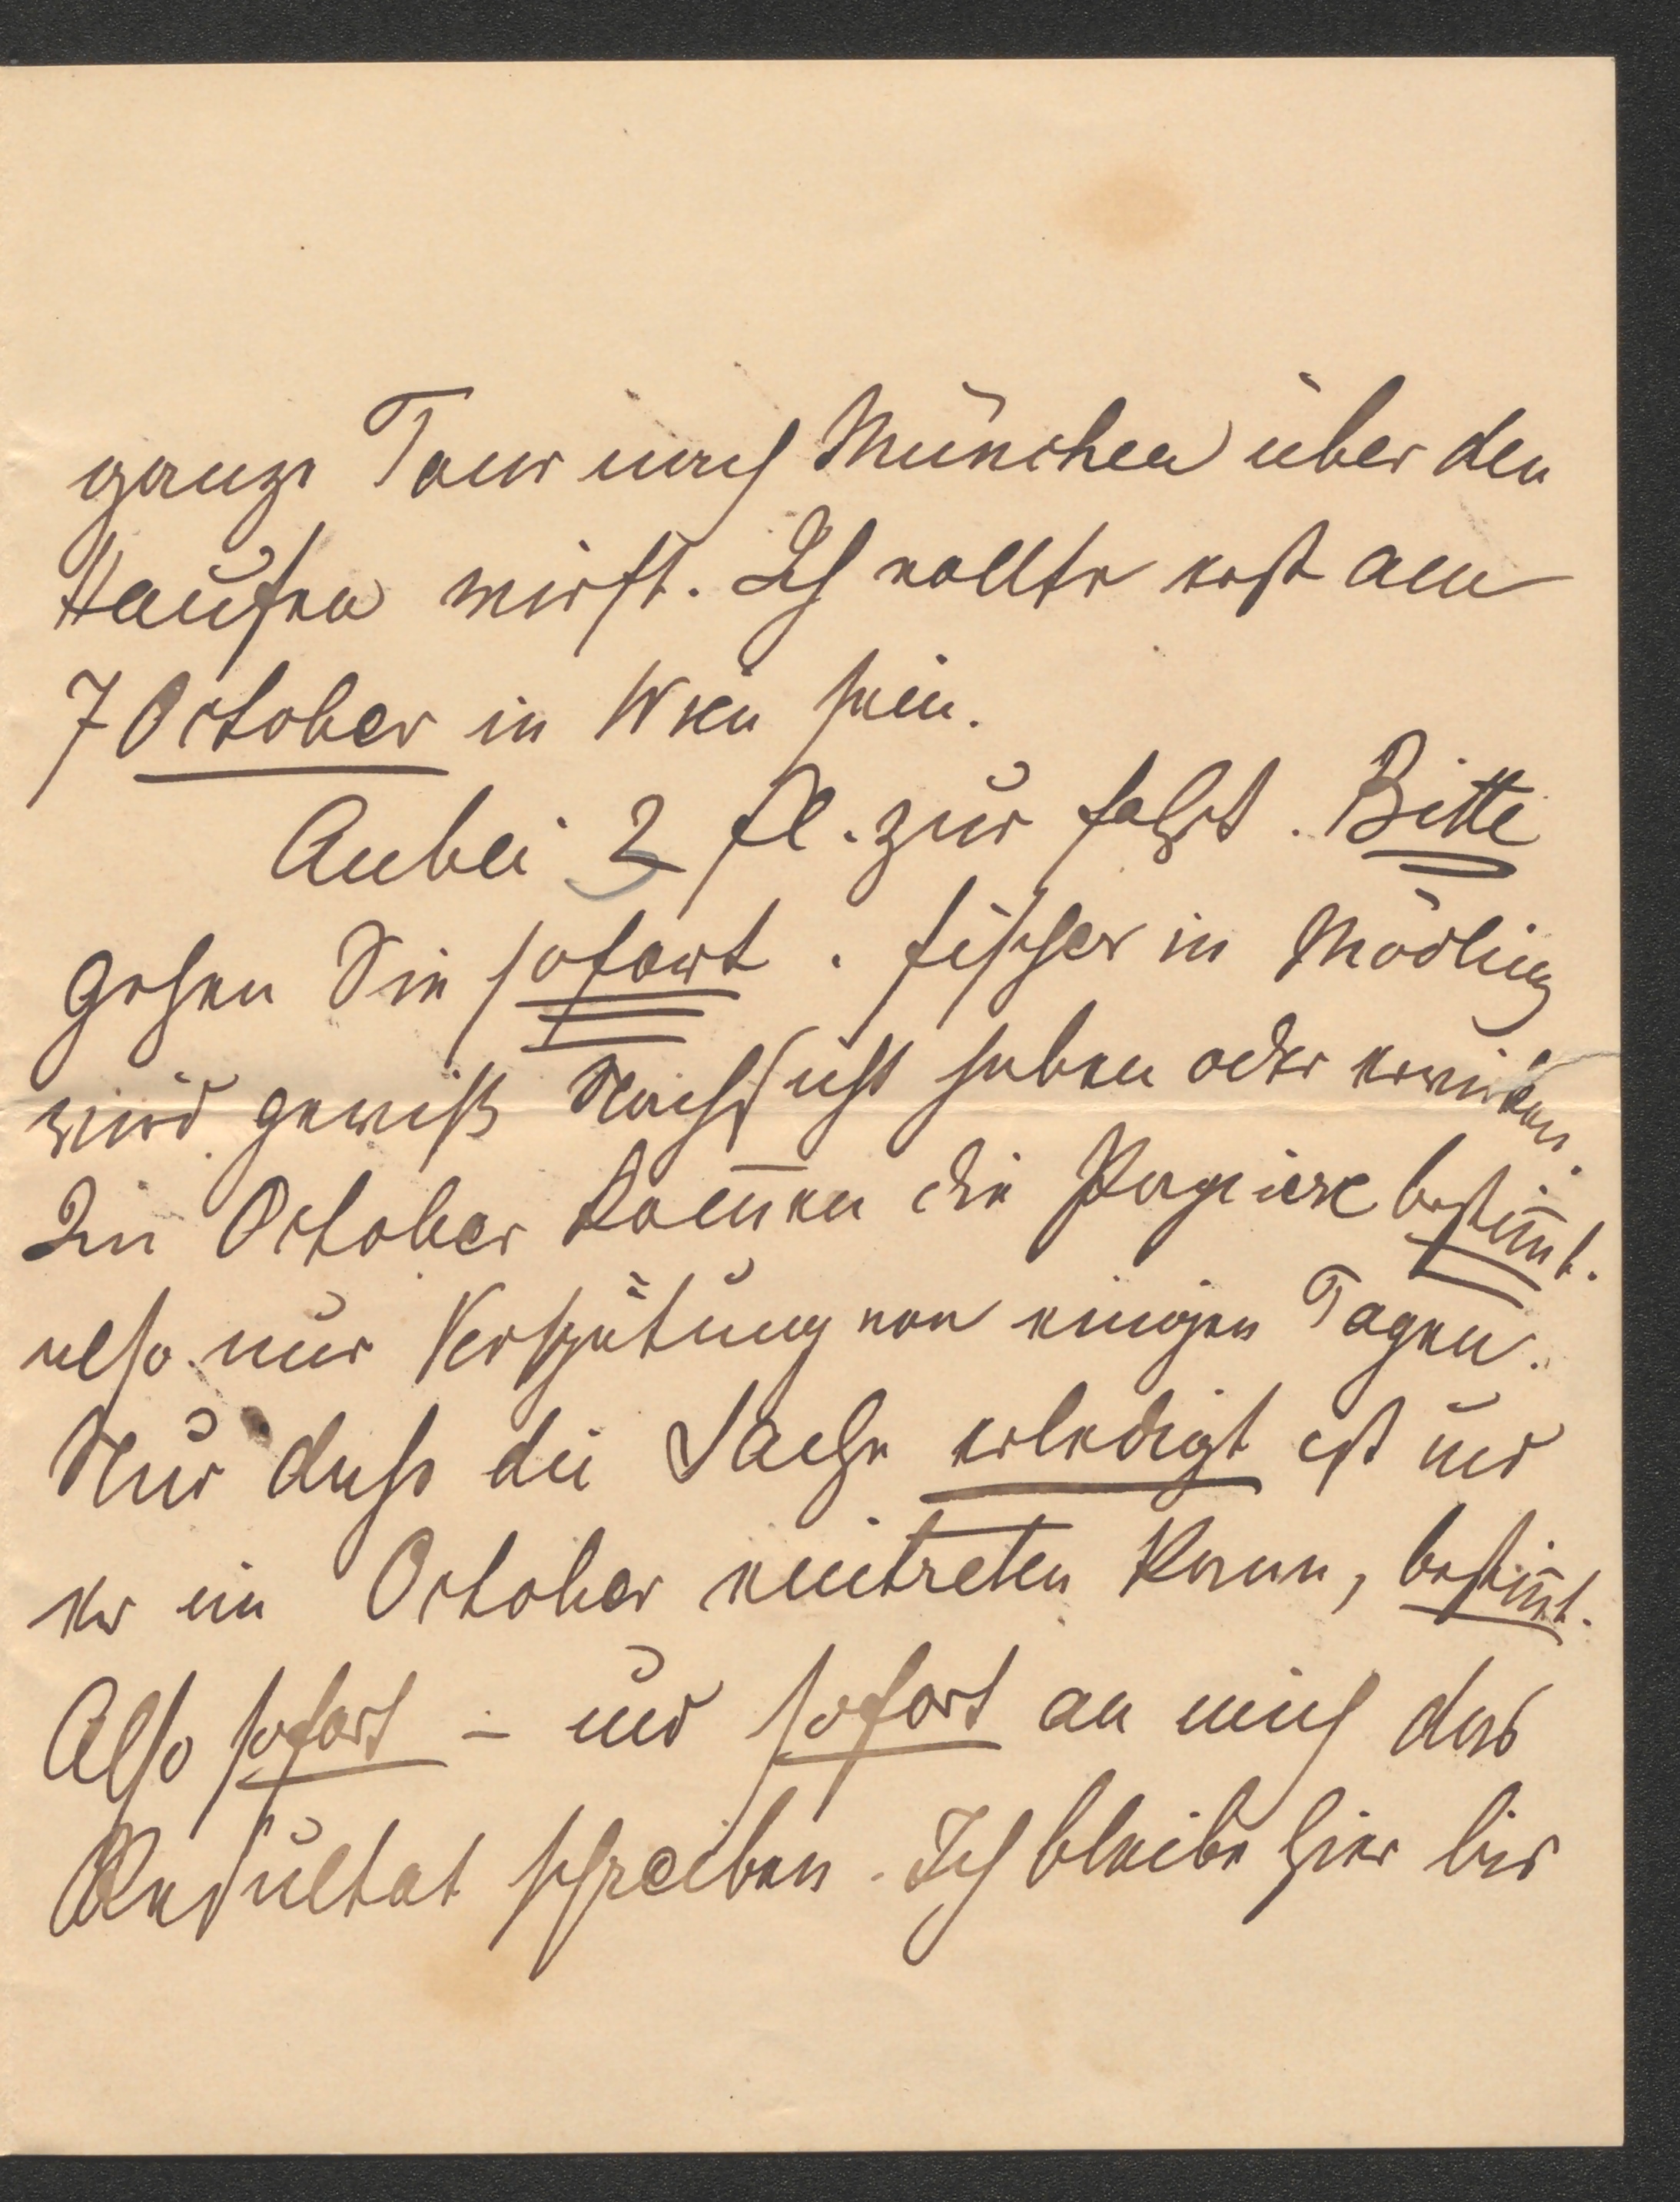 ganze Tour nach München über den
Haufen wirft. Ich wollte erst am
7 October in Wien sein.
Anbei 2 fl. zur Fahrt. Bitte
gehen Sie sofort. Fischer in Mödling
wird gewiß Nachsicht haben oder erwirken.
Im October kom̄en die Papiere bestim̄t.
also nur Verspätung von einigen Tagen.
Nur dass die Sache erledigt ist und
er im October eintreten kann, bestim̄t.
Also sofort – und sofort an mich das
Resultat schreiben. Ich bleibe hier bis